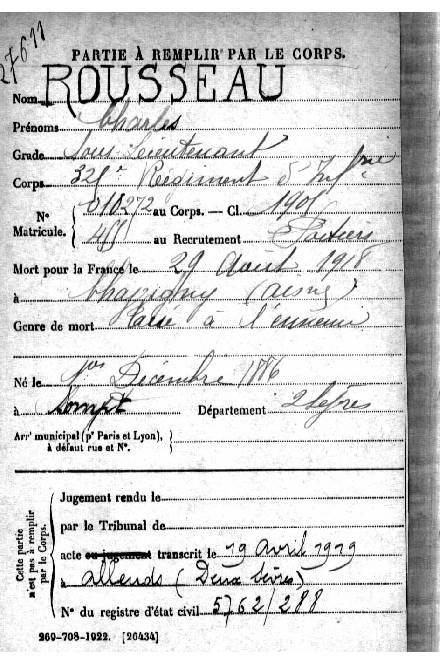 27611
PARTIE À REMPLIR PAR LE CORPS.
Nom ROUSSEAU
Prénoms Charles
Grade Sous-Lieutenant
Corps 325e Régiment d'Infrie
N° Matricule. { 010272 au Corps. — Cl. 1906
au Recrutement Poitiers
Mort pour la France le 29 Août 1918
à (Aisne)
Genre de mort Tué à l'ennemi
Né le 1er Décembre 1886
à Lompt Département 2 Sèvres
Arrt municipal (pr Paris et Lyon), à défaut rue et N°.
Cette partie n'est pas à remplir par le Corps.
Jugement rendu le
par le Tribunal de
acte ou jugement transcrit le 19 avril 1919
à (Deux Sèvres)
N° du registre d'état civil 5762/288
269-708-1922. [26434]